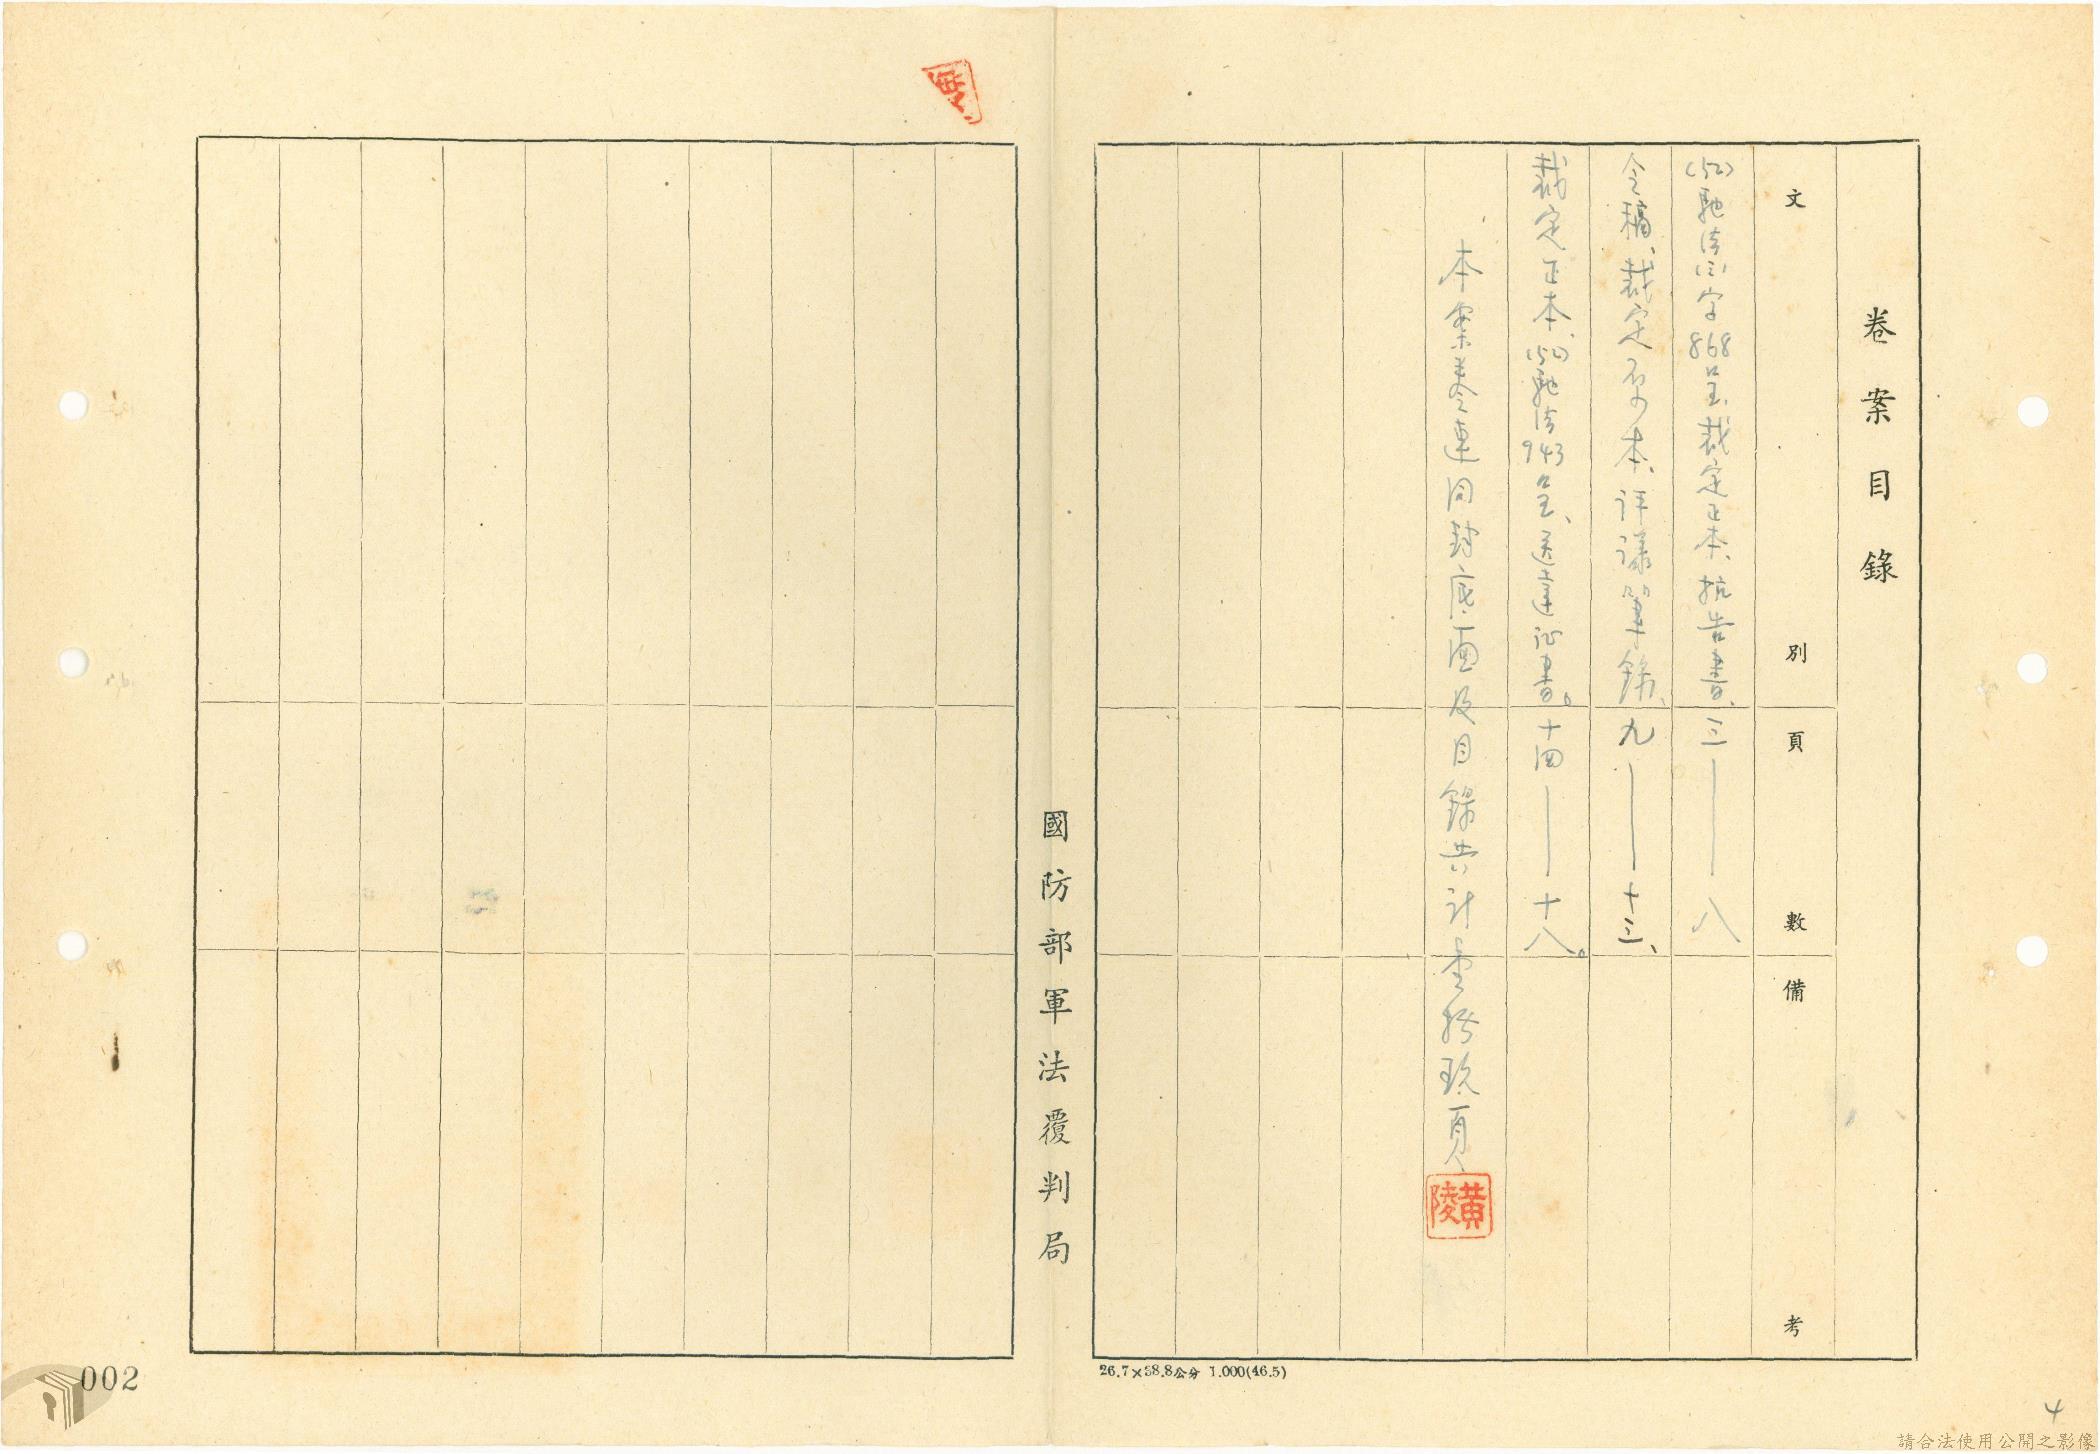 卷案目錄
文別
頁數
備考
(52)馳法(三)字868呈、裁定正本、抗告書、三——八
令稿、裁定原本、評議筆錄、九——十三、
裁定正本、(52)馳法943呈、送達证書。十四——十八。
本案美令連同封底面及目錄共計壹拾玖頁
黃陵
國防部軍法覆判局
26.7×38.8公分 1.000(46.5)
002
4
請合法使用公開之影像